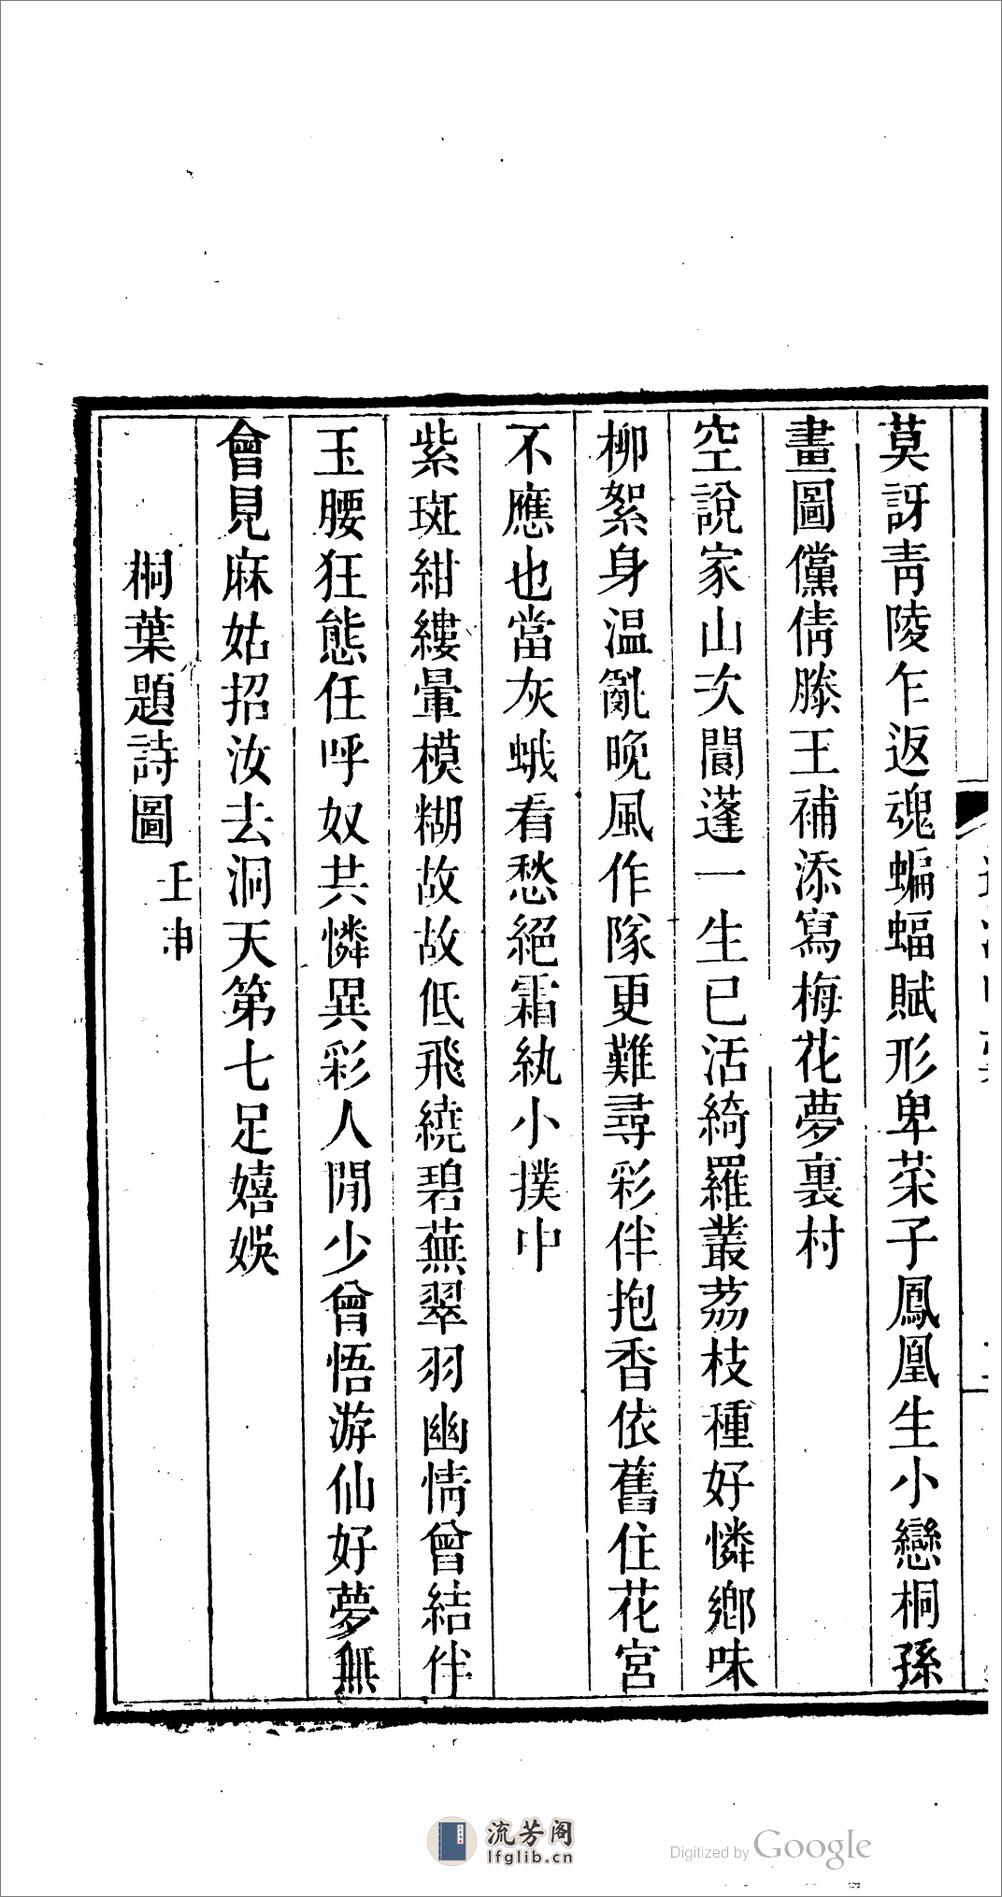 莫訝青陵乍返魂蝙蝠賦形卑菜子鳳凰生小戀桐孫
畫圖儻倩滕王補添寫梅花夢裏村
空說家山次閬蓬一生已活綺羅叢荔枝種好憐鄉味
柳絮身溫亂晚風作隊更難尋彩伴抱香依舊住花宮
不應也當灰蛾看愁絕霜紈小撲中
紫斑紺縷暈模糊故故低飛繞碧蕪翠羽幽情曾結伴
玉腰狂態任呼奴共憐異彩人閒少曾悟游仙好夢無
會見麻姑招汝去洞天第七足嬉娛
桐葉題詩圖 壬申
流芳阁
lfglib.cn
Digitized by Google